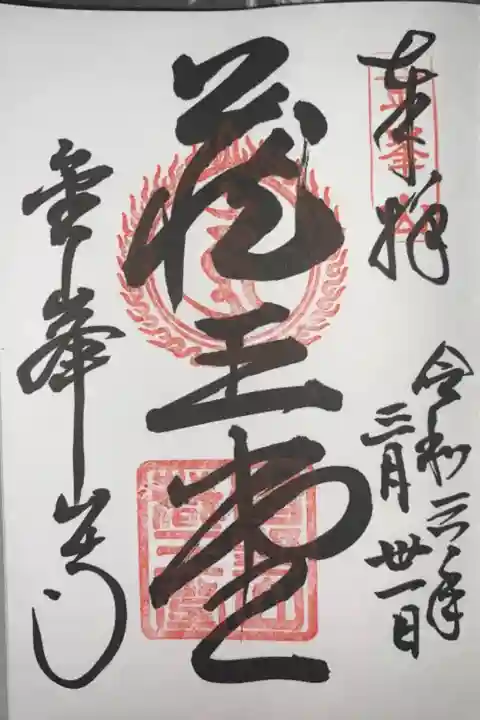 奉拝
令和六年
三月卅一日
蔵王堂
金峯山寺